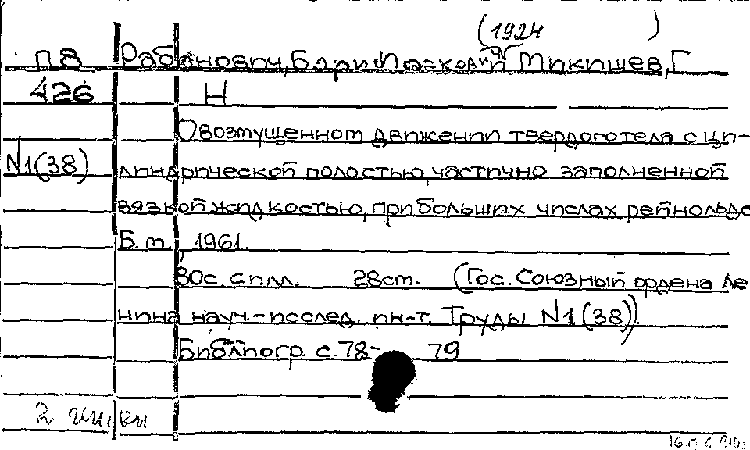 (1924 )
П8 Рабинович, Б ори Исаакович Микишев, Г.
426 Н
О возмущенном движении твердого тела с ци-
N1(38) линдрической полостью, частично заполненной
вязкой жидкостью, при больших числах рейнольдс
Б. м. 1961.
80с. с илл. 28 ст. (Гос. Союзный ордена Ле
нина науч-исслед. ин-т. Труды N1(38))
Библиогр. с. 78- 79
2